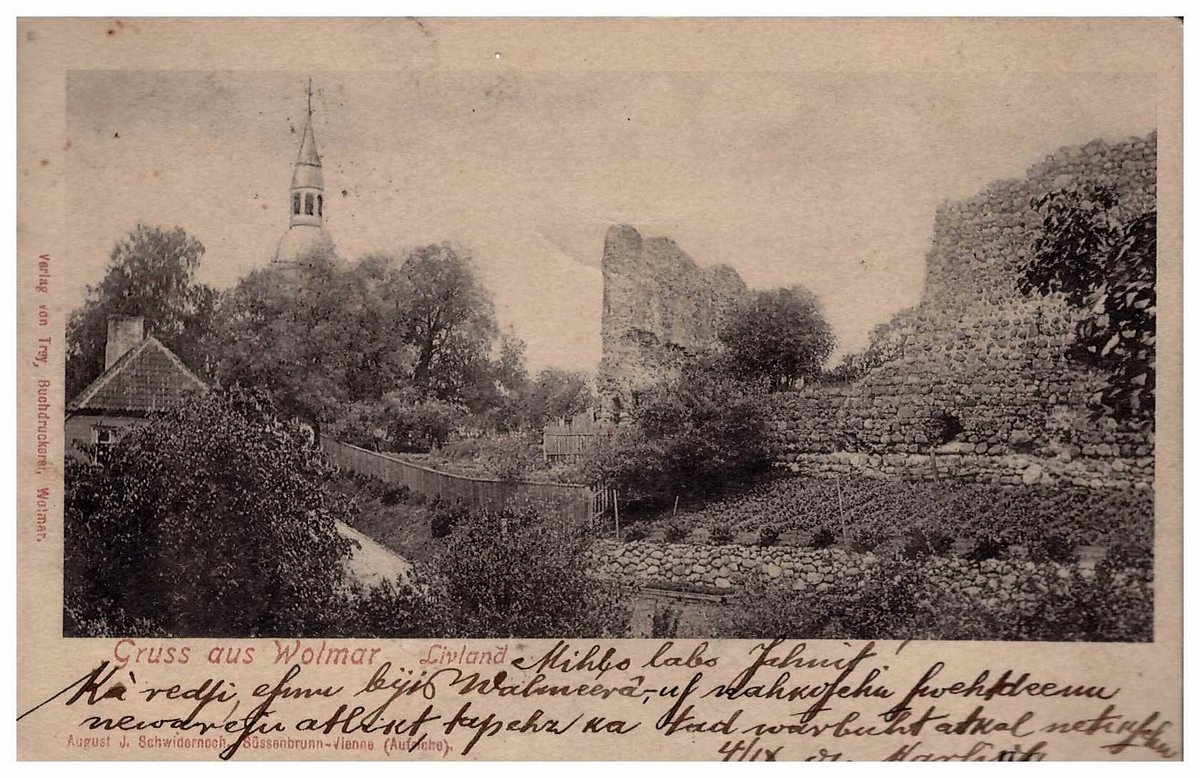 Verlag von Trey, Buchdruckerei, Wolmar.
Gruss aus Wolmar Livland
Mihļo labo Jehnit!
Kà redsi, esmu bijis Walmeerâ, uf nahkoschu swehtdeenu
atlikt tapehz ka tad warbuht atkal
August J. Schwidernoch, Süssenbrunn-Vienne (Autriche).
4/IX